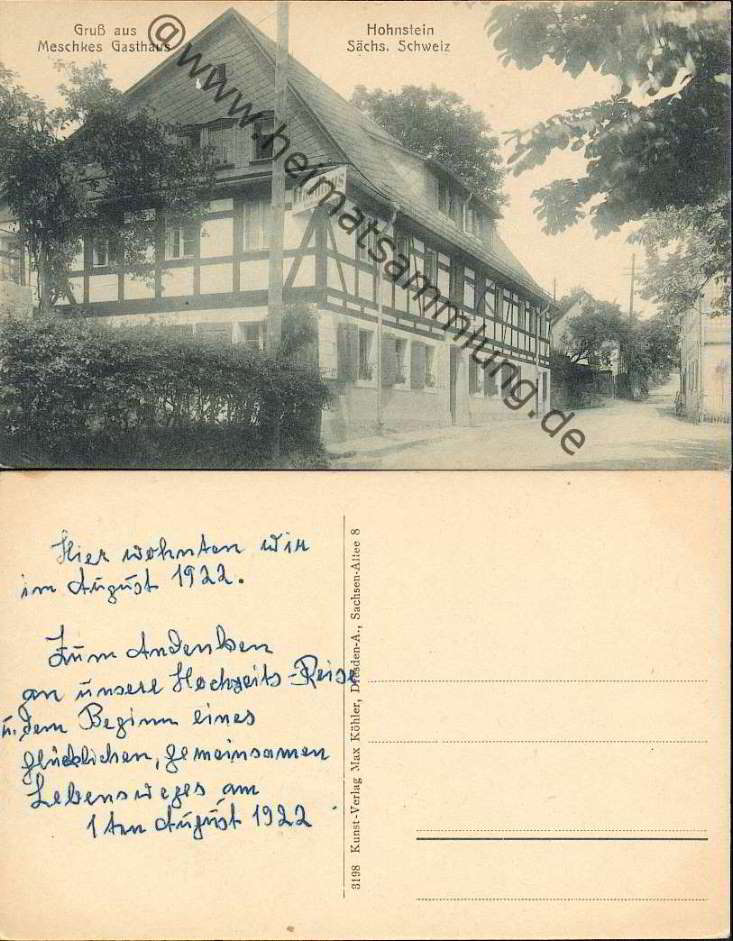 Gruß aus
Meschkes Gasthaus
Hohnstein
Sächs. Schweiz
@www.heimatsammlung.de
Hier wohnten wir
im August 1922.
Zum Andenken
an unsere Hochzeits-Reise
u. dem Beginn eines
glücklichen, gemeinsamen
Lebensweges am
1ten August 1922
3198 Kunst-Verlag Max Köhler, Dresden-A., Sachsen-Allee 8